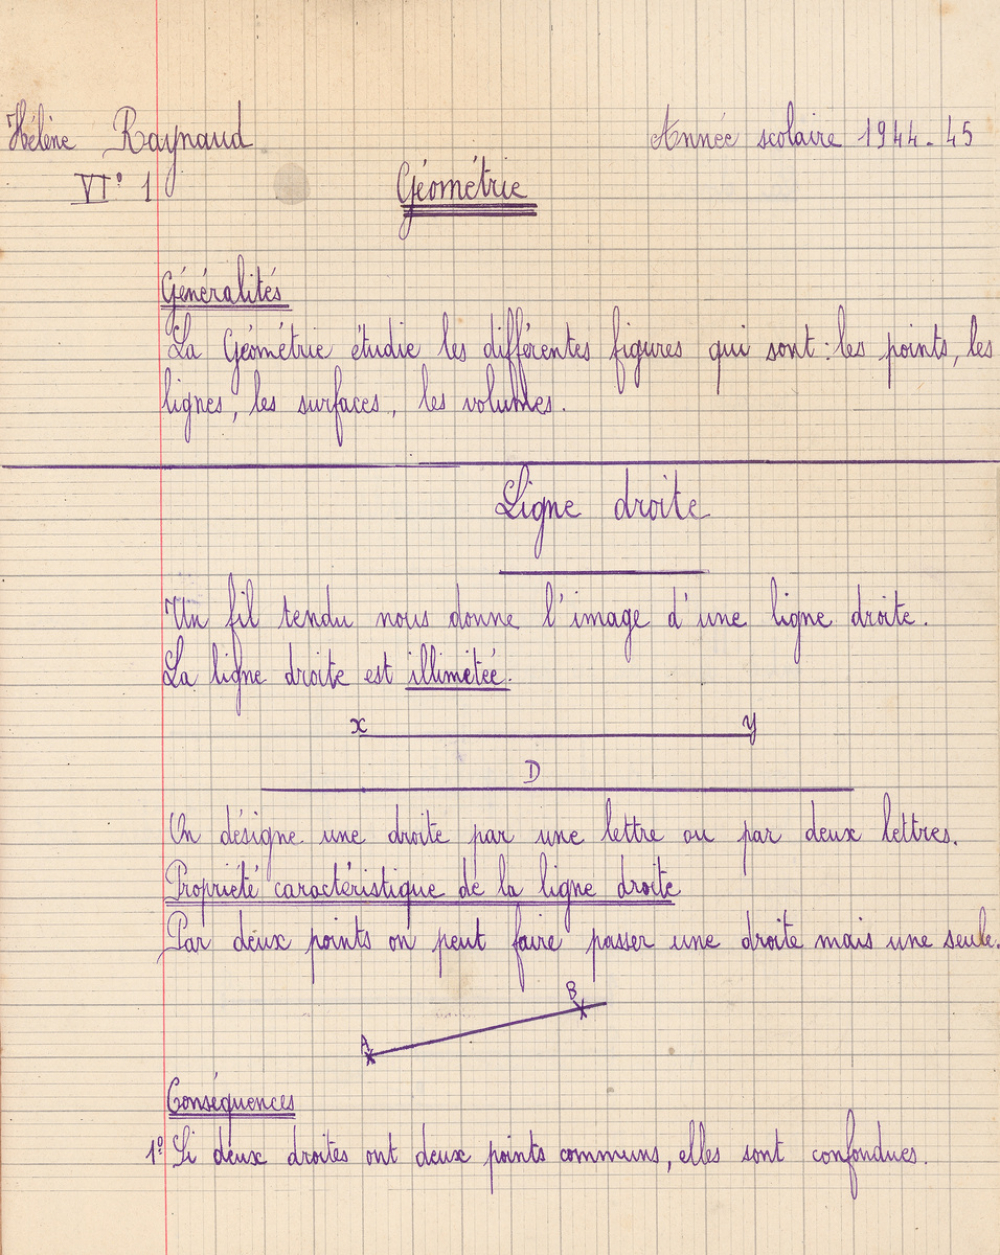 Hélène Raynaud
Année scolaire 1944-45
VI° 1
Géométrie
Généralités
La Géométrie étudie les différentes figures qui sont : les points, les
lignes, les surfaces, les volumes.
Ligne droite
Un fil tendu nous donne l'image d'une ligne droite.
La ligne droite est illimitée.
x y
D
On désigne une droite par une lettre ou par deux lettres.
Propriété caractéristique de la ligne droite
Par deux points on peut faire passer une droite mais une seule.
B
A
Conséquences
1° Si deux droites ont deux points communs, elles sont confondues.